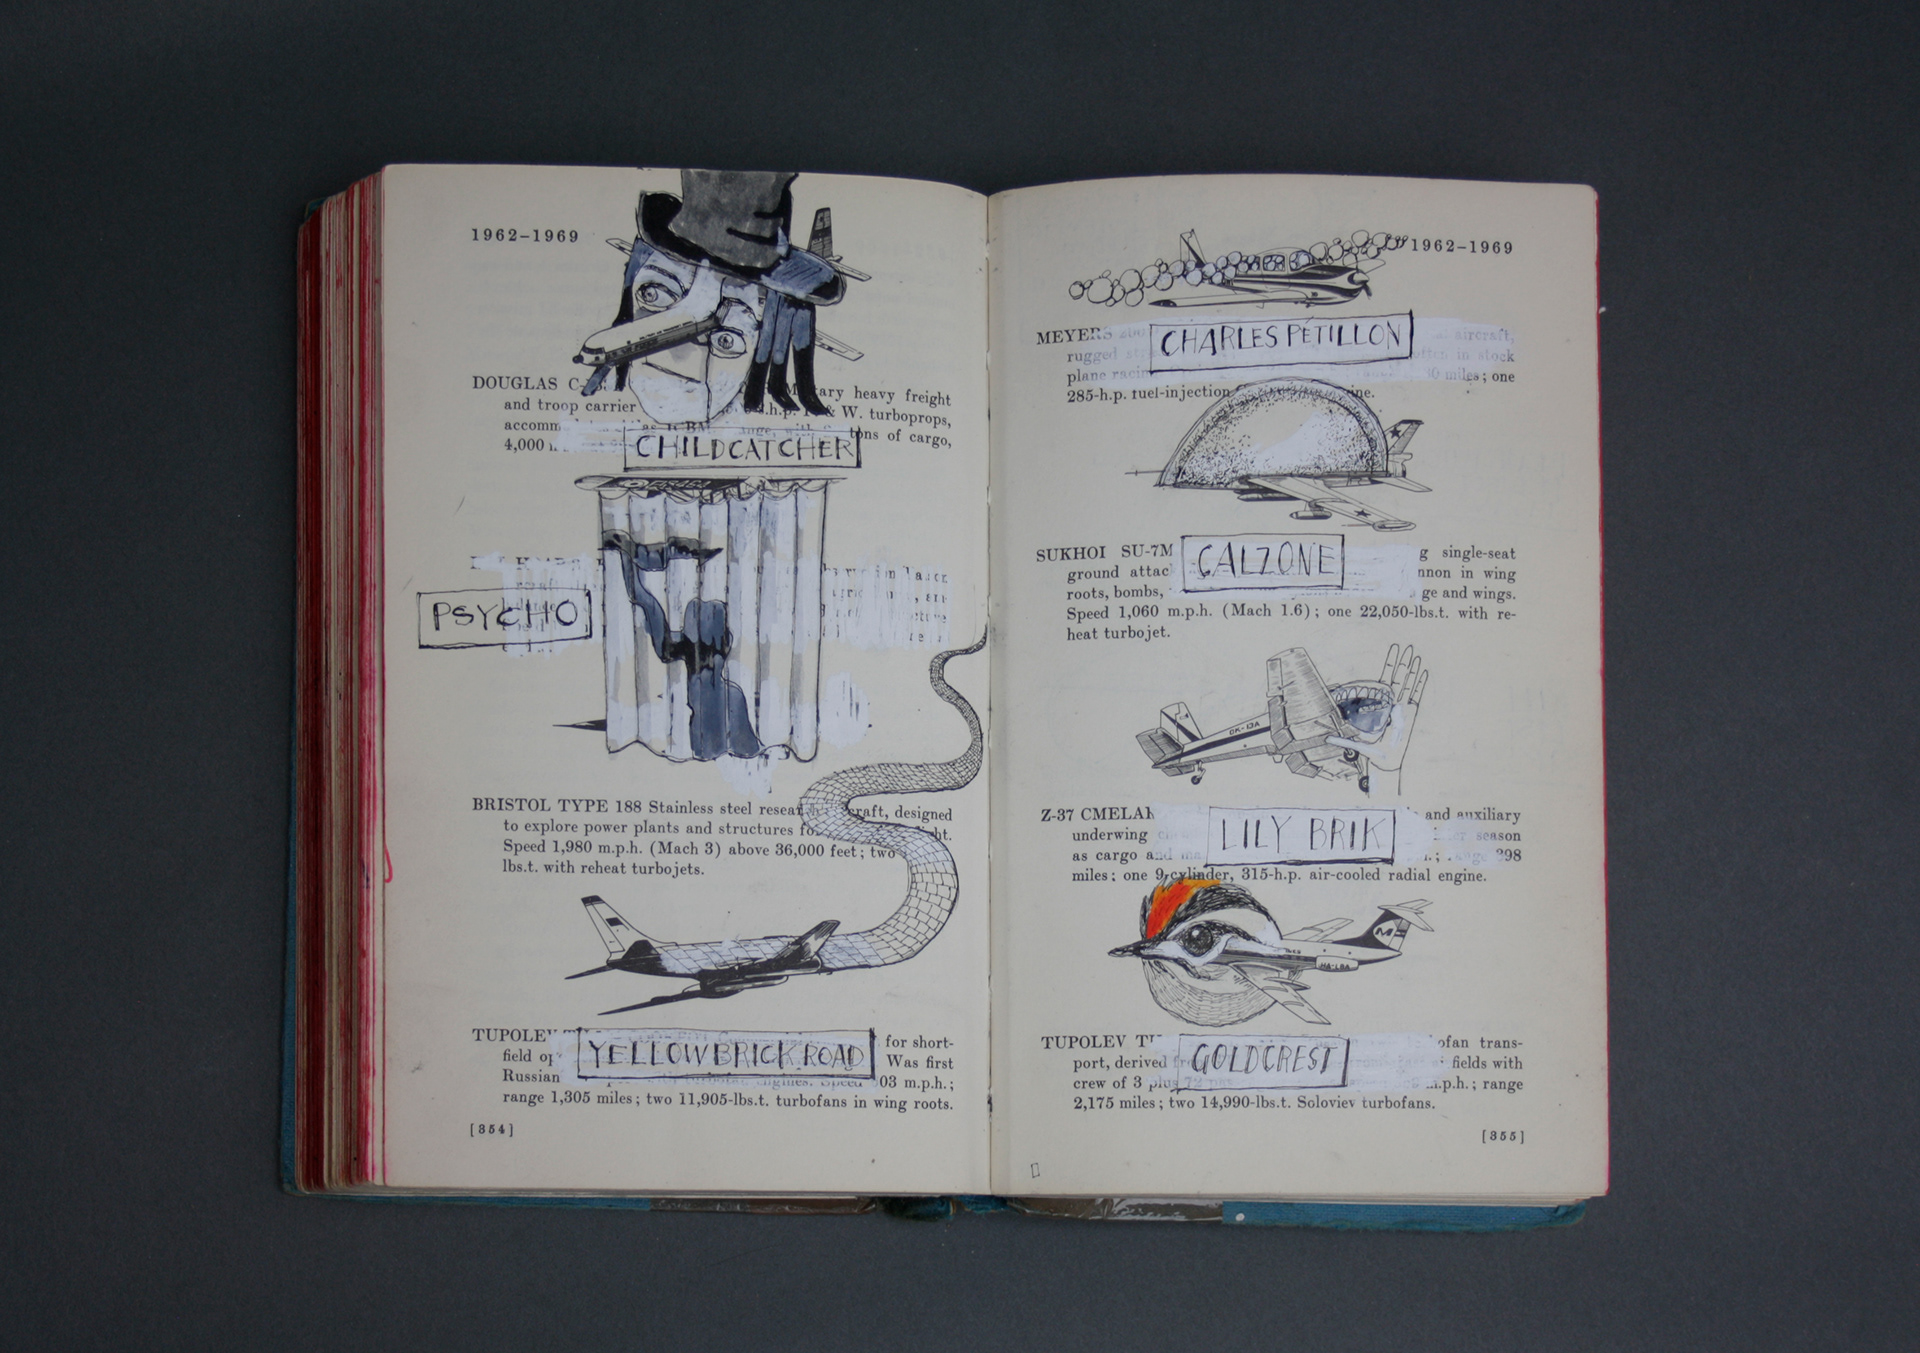 1962–1969
DOUGLAS C-
heavy freight
and troop carrier & W. turboprops,
accom tons of cargo,
4,000
CHILDCATCHER
PSYCHO
BRISTOL TYPE 188 Stainless steel resear craft, designed
to explore power plants and structures fo ght.
Speed 1,980 m.p.h. (Mach 3) above 36,000 feet; two
lbs.t. with reheat turbojets.
TUPOLEV for short-
field op Was first
YELLOW BRICK ROAD
Russian 03 m.p.h.;
range 1,305 miles; two 11,905-lbs.t. turbofans in wing roots.
[354]
1962–1969
MEYERS aircraft,
CHARLES PÉTILLON
rugged often in stock
plane racin miles; one
285-h.p. fuel-injection ine.
SUKHOI SU-7M g single-seat
CALZONE
ground attac nnon in wing
roots, bombs, ge and wings.
Speed 1,060 m.p.h. (Mach 1.6); one 22,050-lbs.t. with re-
heat turbojet.
OK-13A
Z-37 CMELAK and auxiliary
LILY BRIK
underwing season
as cargo and 398
miles; one 9-cylinder, 315-h.p. air-cooled radial engine.
M
HA-LBA
TUPOLEV TU ofan trans-
GOLDCREST
port, derived fields with
crew of 3 plus 72 m.p.h.; range
2,175 miles; two 14,990-lbs.t. Soloviev turbofans.
[355]